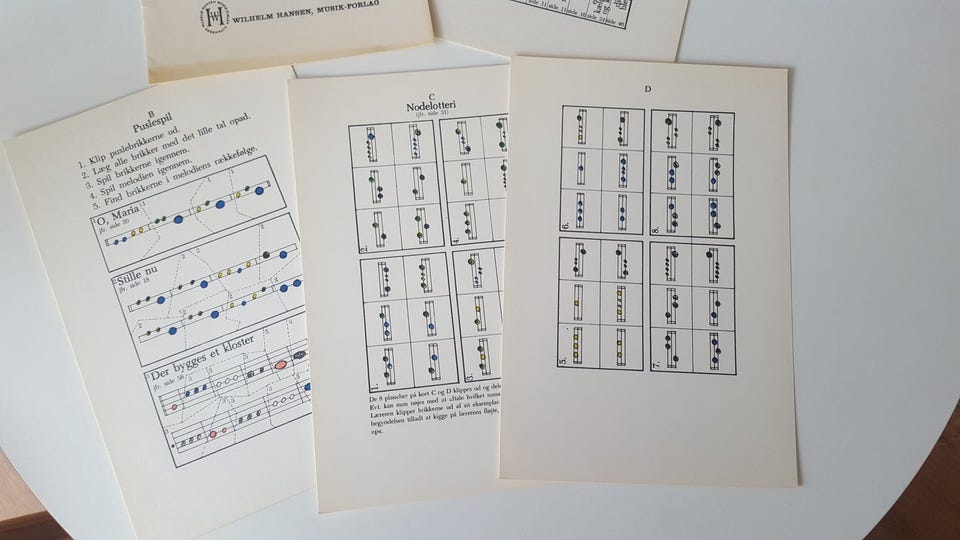 WILHELM HANSEN, MUSIK-FORLAG
side 11
side 11
side 16
side 24
side 45
B
Puslespil
1. Klip puslebrikkerne ud.
2. Læg alle brikker med det lille tal opad.
3. Spil brikkerne igennem.
4. Spil melodien igennem.
5. Find brikkerne i melodiens rækkefølge.
O, Maria
jfr. side 20
Stille nu
jfr. side 18
Der bygges et kloster
jfr. side 58
C
Nodelotteri
(jfr. side 31)
2.
4.
1.
3.
De 8 plancher på kort C og D klippes ud og dele
Evt. kan man nøjes med at aftale hvilket num
Læreren klipper brikkerne ud af sit eksemplar.
begyndelsen tilladt at kigge på lærerens fløjte,
D
6.
8.
5.
7.